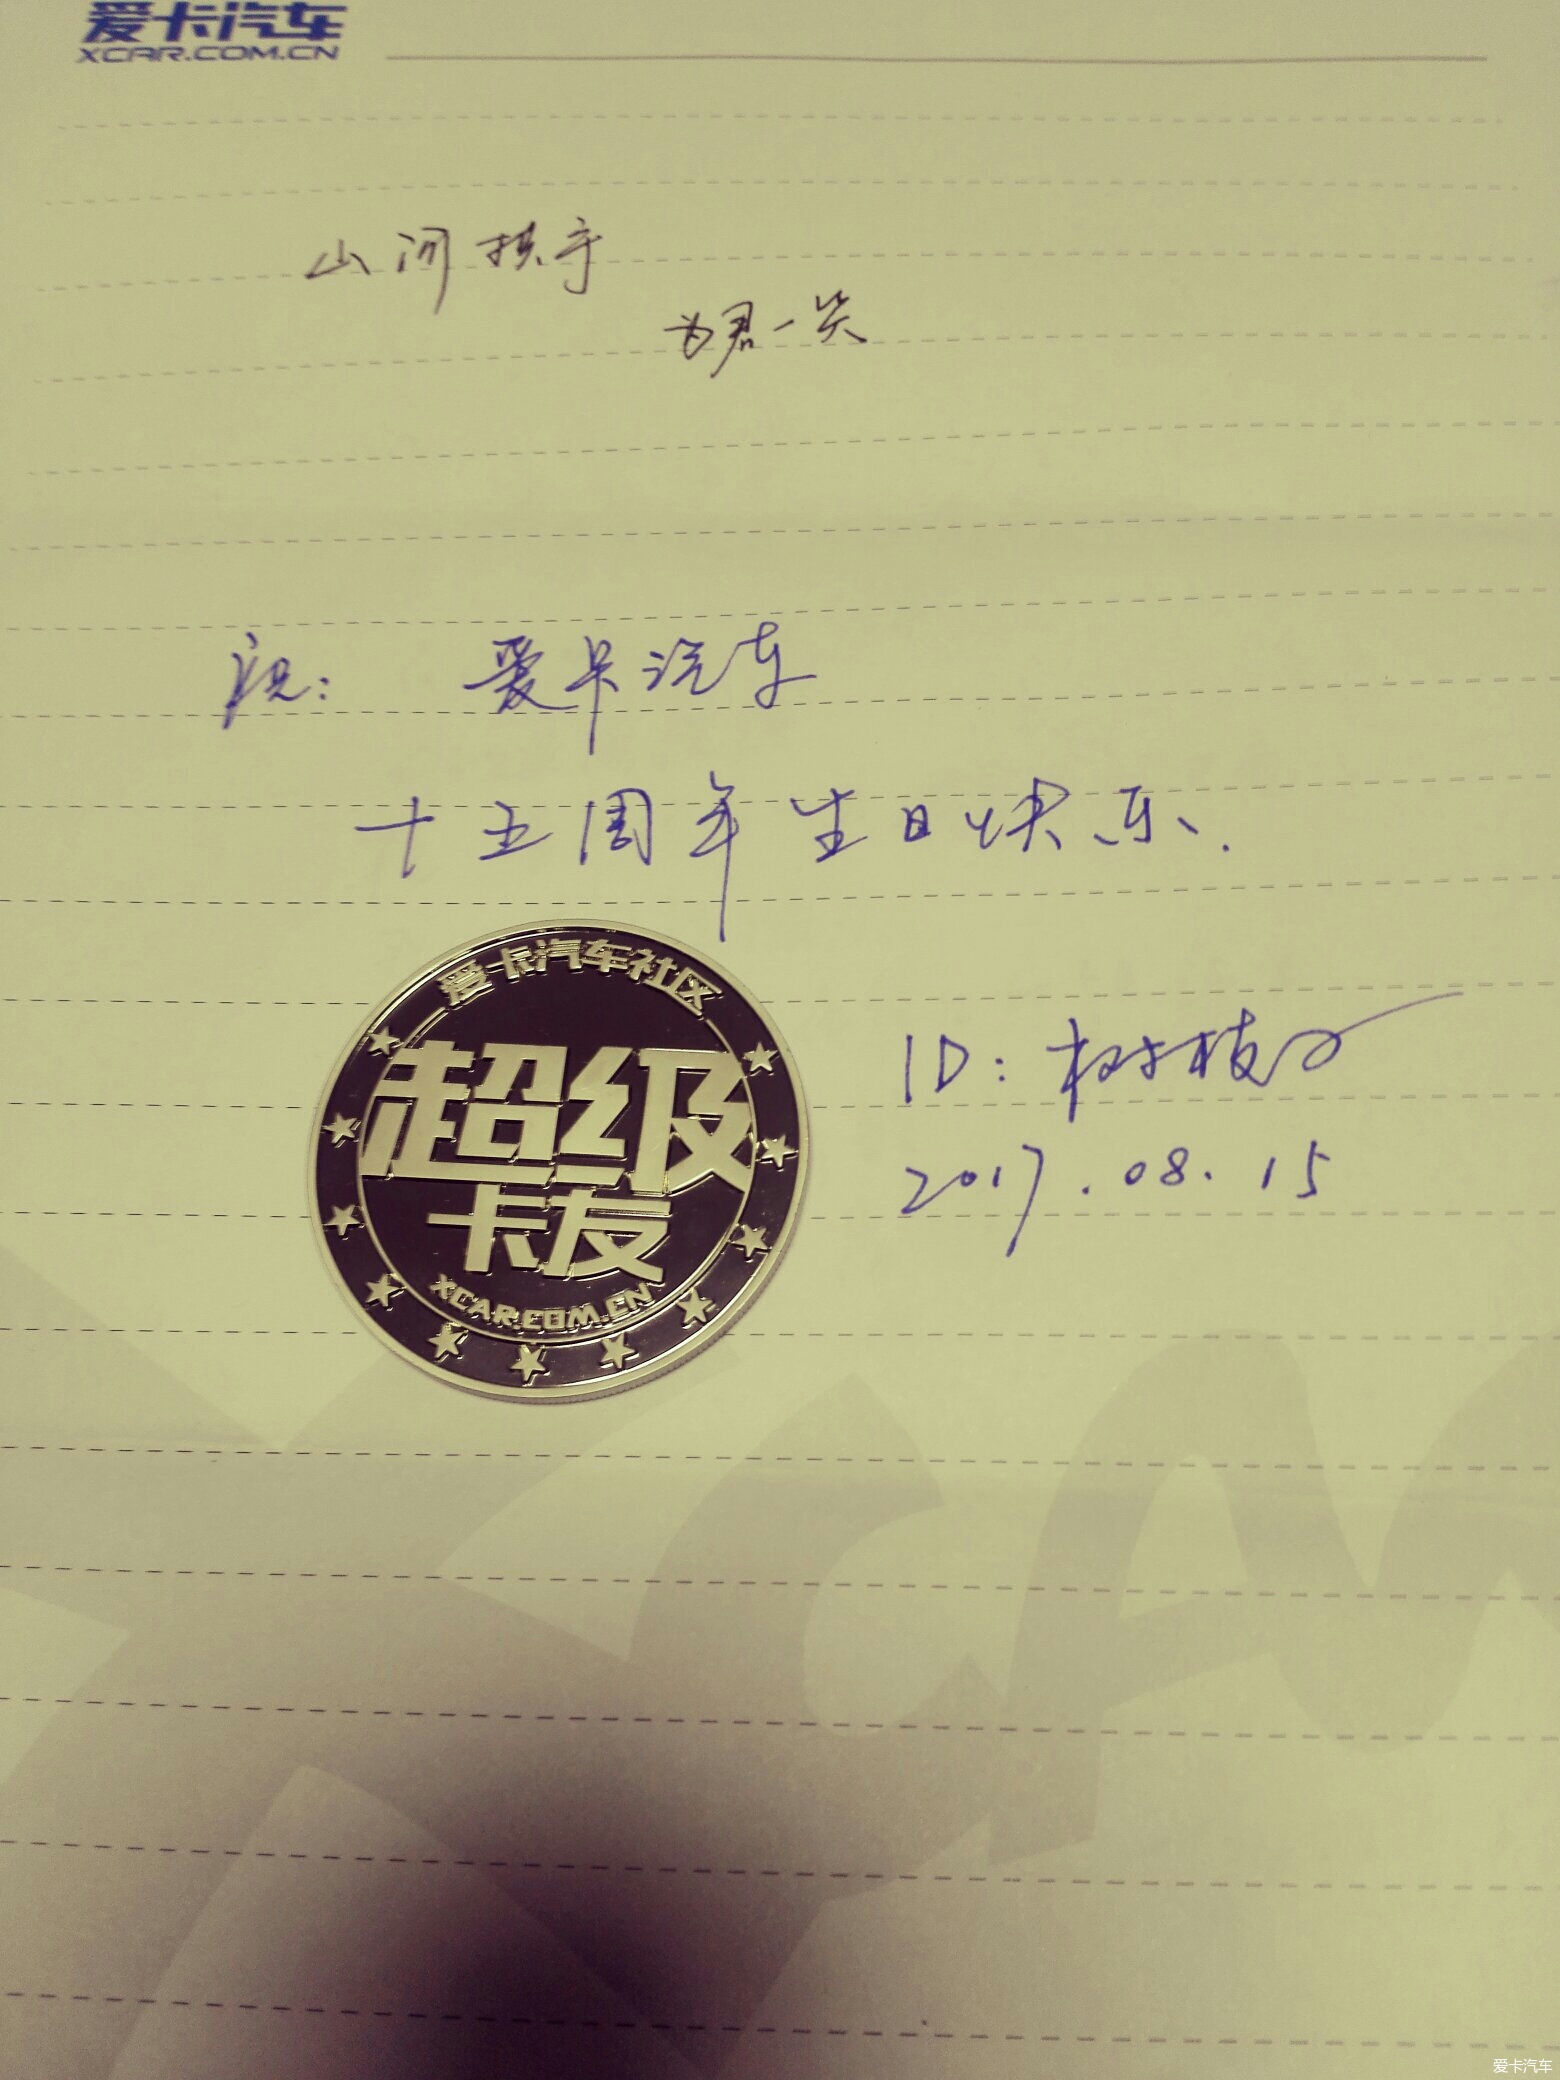 爱卡汽车
XCAR.COM.CN
山河拱手
为君一笑
祝: 爱卡汽车
十五周年生日快乐.
爱卡汽车社区
超级
卡友
XCAR.COM.CN
ID: 树枝
2017.08.15
爱卡汽车